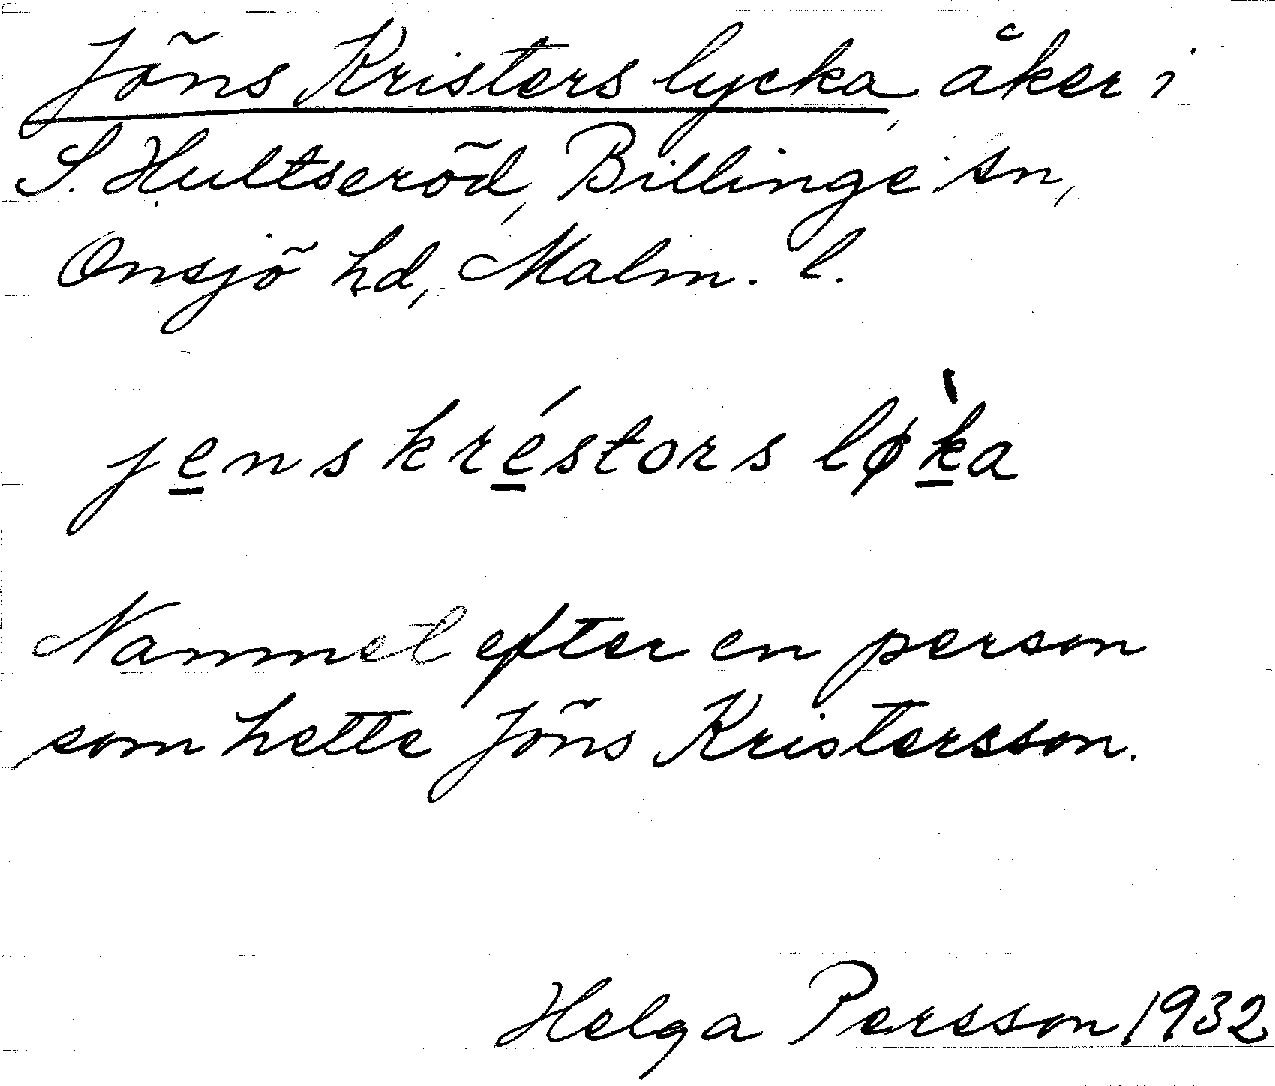 Jöns Kristers lycka, åker i
S. Hultseröd, Billinge sn,
Onsjö hd, Malm. l.
jens kréstors løk̀a
Namnet efter en person
som hette Jöns Kristersson.
Helga Persson 1932